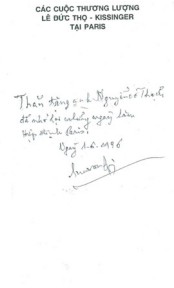 CÁC CUỘC THƯƠNG LƯỢNG
LÊ ĐỨC THỌ - KISSINGER
TẠI PARIS
Thân tặng anh Nguyễn Cơ Thạch
để nhớ lại những ngày làm
Hiệp định Paris.
Ngày 1-6-1996